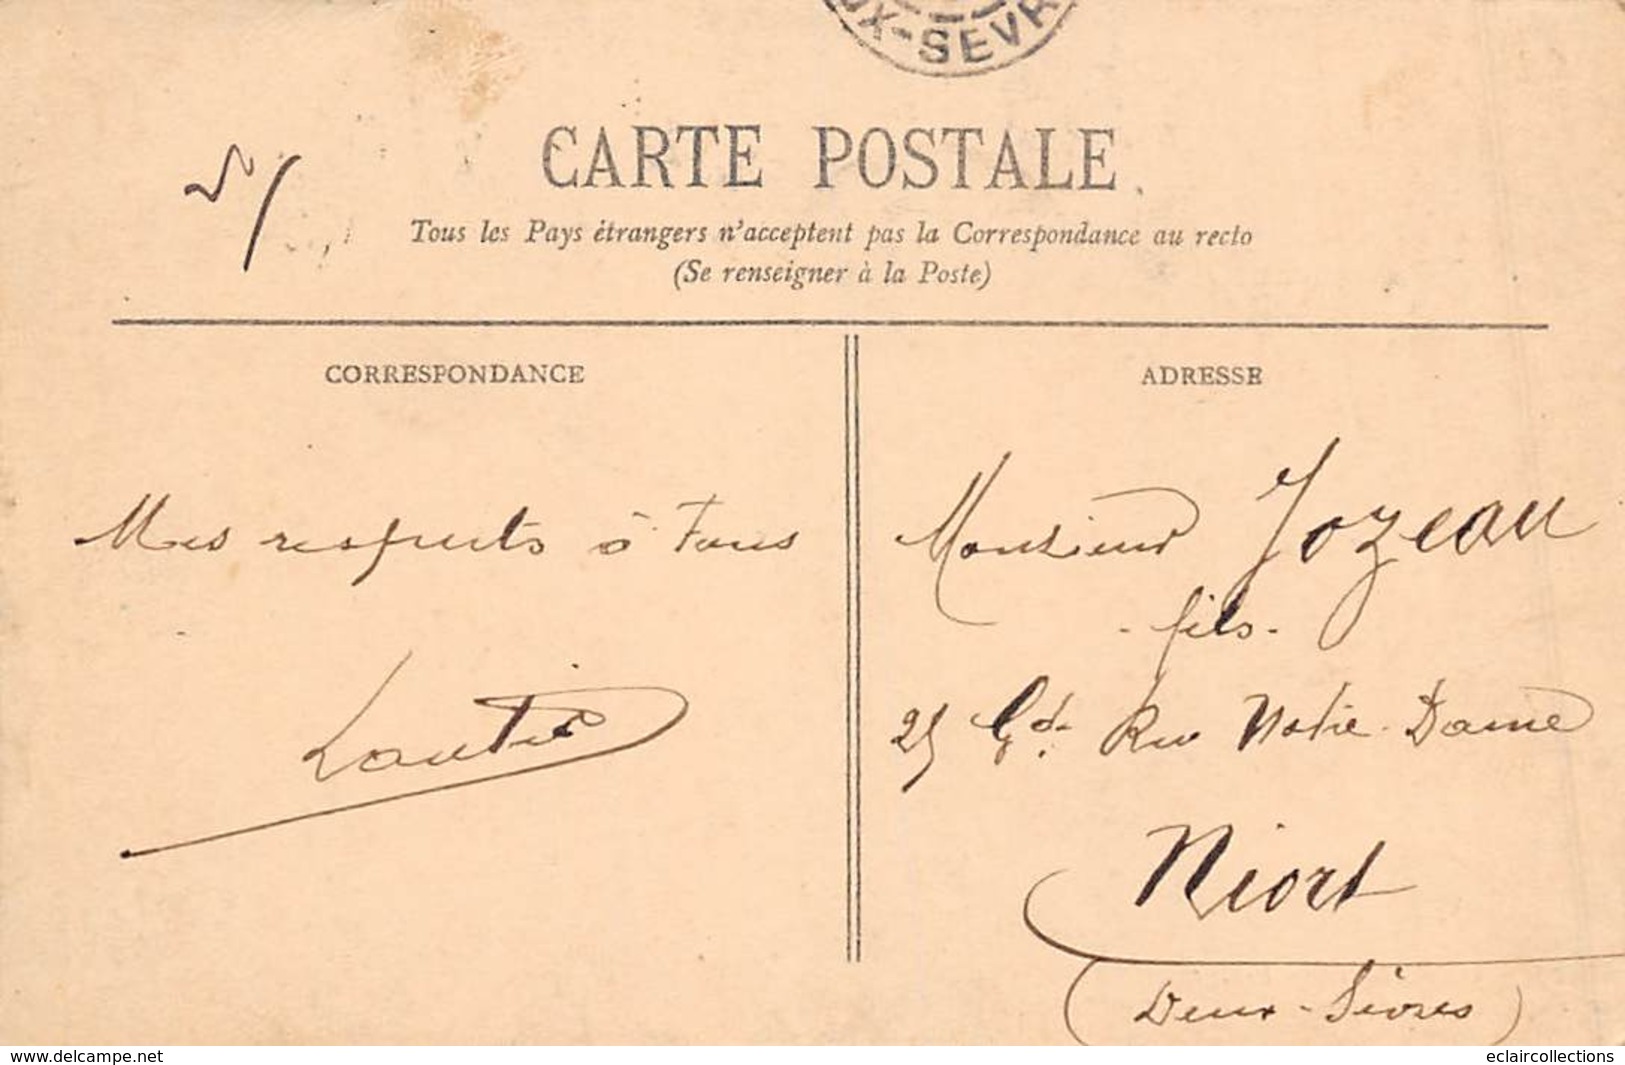 UX-SEVR
CARTE POSTALE
Tous les Pays étrangers n'acceptent pas la Correspondance au recto
(Se renseigner à la Poste)
CORRESPONDANCE
Mes respects à Tous
ADRESSE
Monsieur Jozeau
- fils -
25 Gde Rue Notre-Dame
Niort
(Deux-Sèvres)
www.delcampe.net
eclaircollections